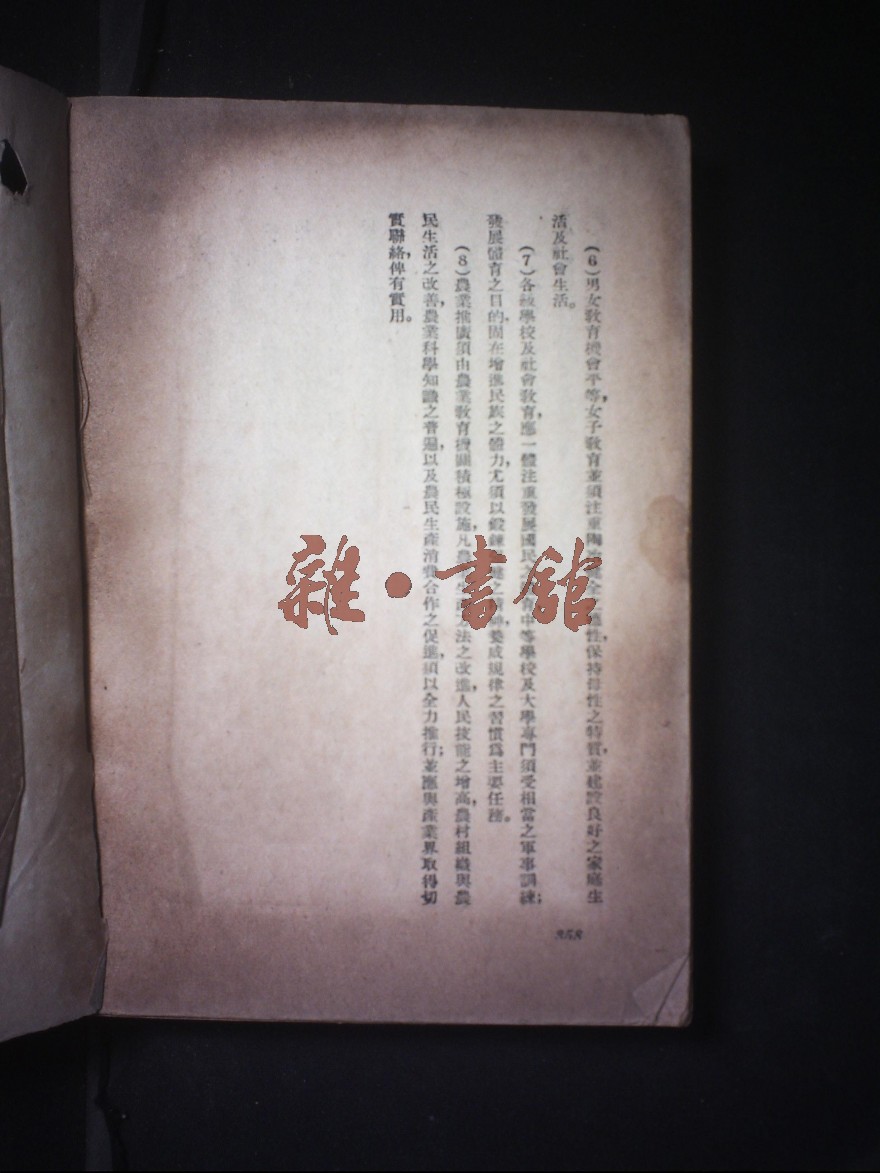 (6)男女教育機會平等，女子教育並須注重陶 全 性，保持母性之特質，並建設良好之家庭生
活及社會生活。
(7)各級學校及社會教育，應一體注重發展國民之 育中等學校及大學專門須受相當之軍事訓練；
發展體育之目的，固在增進民族之體力，尤須以鍛鍊 之 養成規律之習慣為主要任務。
(8)農業推廣須由農業教育機關積極設施，凡農 方法之改進，人民技能之增高，農村組織與農
民生活之改善，農業科學知識之普遍，以及農民生產消費合作之促進，須以全力推行；並應與產業界取得切
實聯絡，俾有實用。
358
雜·書館